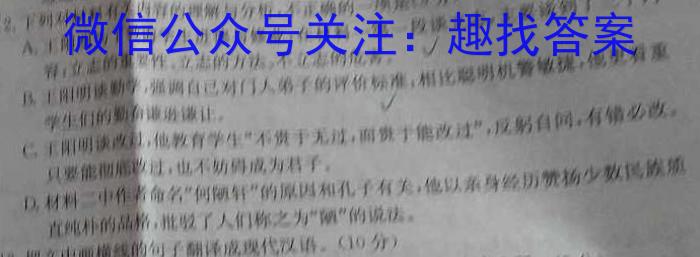 微信公众号关注：趣找答案
容,立志的重要性、立志的方法、不立志的危害。
B. 王阳明谈勤学,强调自己对门人弟子的评价标准,相比聪明机警敏捷,他更看重
学生们的勤奋谦逊谦让。
C. 王阳明谈改过,他教育学生“不贵于无过,而贵于能改过”,反躬自问,有错必改。
只要能彻底改过,也不妨碍成为君子。
D. 材料二中作者命名“何陋轩”的原因和孔子有关,他以亲身经历赞扬少数民族质
直纯朴的品格,批驳了人们称之为“陋”的说法。
把文中画横线的句子翻译成现代汉语。(10分)